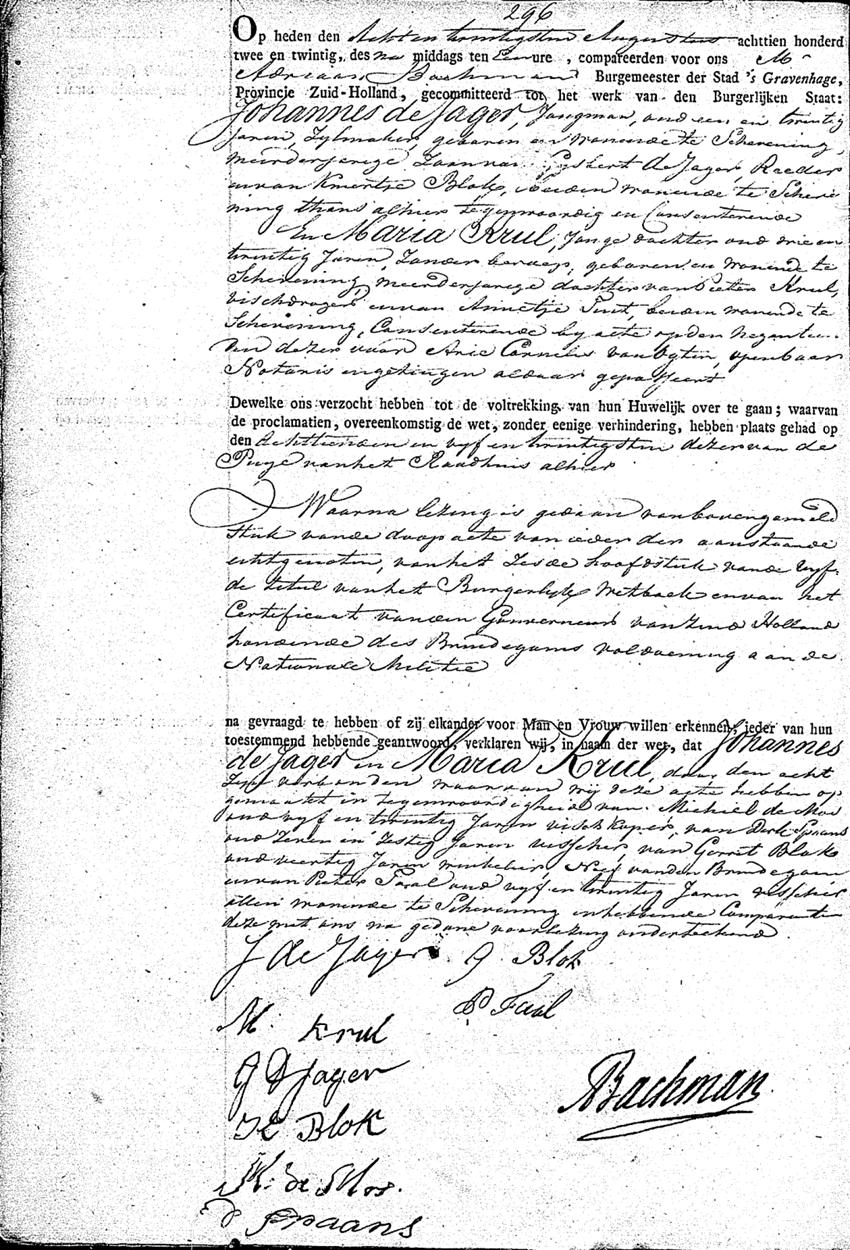 296
Op heden den Acht en twintigsten Augustus achttien honderd
twee en twintig, des na middags ten Een ure, compareerden voor ons Mr
Adriaan Bachman Burgemeester der Stad 's Gravenhage,
Provincie Zuid-Holland, gecommitteerd tot het werk van den Burgerlijken Staat:
Johannes de Jager, Jongman, oud een en twintig
Jaren, Zylmaker, geboren en wonende te Schevening,
meerderjarige Zoon van Gysbert de Jager, Reeder
en van Kniertje Blok, beiden wonende te Scheve
ning thans alhier tegenwoordig en Consenterende
En Maria Krul, Jonge dochter oud drie en
twintig Jaren, Zonder beroep, geboren en wonende te
Schevening, meerderjarige dochter van Pieter Krul,
vischdrager en van Annetje Tuit, beiden wonende te
Schevening, Consenterende by acte op den Negentien
den dezer voor Arie Cornelis van Ogten, openbaar
Notaris in getuigen aldaar gepasseert
Dewelke ons verzocht hebben tot de voltrekking van hun Huwelijk over te gaan; waarvan
de proclamatien, overeenkomstig de wet, zonder eenige verhindering, hebben plaats gehad op
den achttienden en vyf en twintigsten dezer van de
Puye van het Raadhuis alhier
Waarna lezing is gedaan van bovengemeld
stuk van de doop acte van ieder der aanstaande
echtgenoten, van het Zesde hoofdstuk van de vyf-
de titel van het Burgerlyk Wetboek en van het
Certificaat van den Gouverneur van Zuid Holland
houdende des Bruidegoms voldoening aan de
Nationale Militie
na gevraagd te hebben of zij elkander voor Man en Vrouw willen erkennen, ieder van hun
toestemmend hebbende geantwoord, verklaren wij, in naam der wet, dat Johannes
de Jager en Maria Krul, door den echt
Zyn verbonden waarvan wij deze acte hebben op
gemaakt in tegenwoordigheid van Michiel de Mos
oud vyf en twintig Jaren vischkoper, van Dirk Spaans
oud Zeven en Zestig Jaren visscher, van Gerrit Blok
oud veertig Jaren winkelier, Neef van den Bruidegom
en van Pieter Taal oud vyf en twintig Jaren visscher
allen wonende te Schevening en hebbende Comparanten
deze met ons na gedane voorlezing ondertekend.
J de Jager G. Blok
P Taal
M. Krul
G D Jager
K Blok
ABachman
M. de Mos.
D Spaans